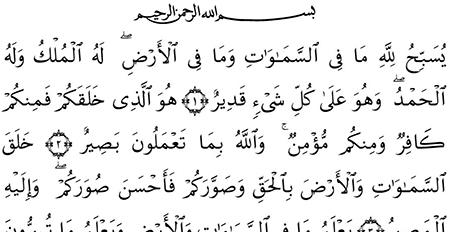 بسم الله الرحمن الرحيم
يُسَبِّحُ لِلَّهِ مَا فِى ٱلسَّمَـٰوَٰتِ وَمَا فِى ٱلْأَرْضِ ۖ لَهُ ٱلْمُلْكُ وَلَهُ
ٱلْحَمْدُ ۖ وَهُوَ عَلَىٰ كُلِّ شَىْءٍ قَدِيرٌ ﴿١﴾ هُوَ ٱلَّذِى خَلَقَكُمْ فَمِنكُمْ
كَافِرٌ وَمِنكُم مُّؤْمِنٌ ۚ وَٱللَّهُ بِمَا تَعْمَلُونَ بَصِيرٌ ﴿٢﴾ خَلَقَ
ٱلسَّمَـٰوَٰتِ وَٱلْأَرْضَ بِٱلْحَقِّ وَصَوَّرَكُمْ فَأَحْسَنَ صُوَرَكُمْ ۖ وَإِلَيْهِ
ٱلْمَصِيرُ ﴿٣﴾ يَعْلَمُ مَا فِى ٱلسَّمَـٰوَٰتِ وَٱلْأَرْضِ وَيَعْلَمُ مَا تُسِرُّونَ